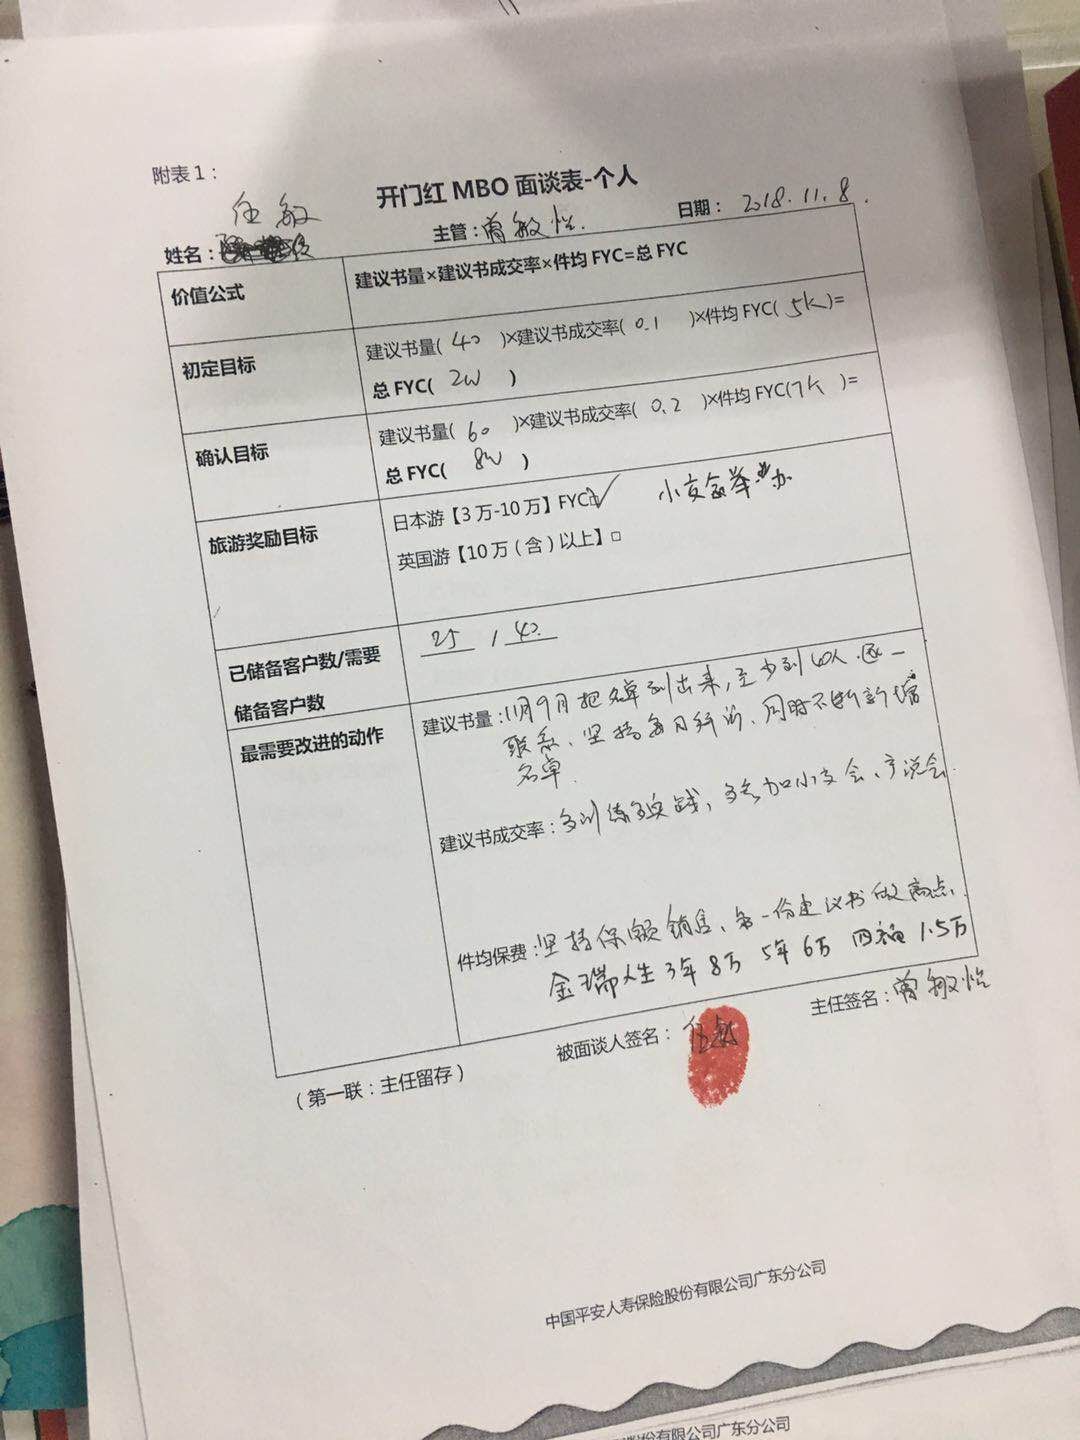 附表1：
开门红 MBO 面谈表-个人
任敏
姓名：
主管：曾敏怡.
日期： 2018.11.8.
价值公式
建议书量×建议书成交率×件均 FYC=总 FYC
初定目标
建议书量( 40 )×建议书成交率( 0.1 )×件均 FYC( 5K )=
总 FYC( 2W )
确认目标
建议书量( 60 )×建议书成交率( 0.2 )×件均 FYC(7K )=
总 FYC( 8W )
旅游奖励目标
日本游【3 万-10 万】FYC☑
小交会举办
英国游【10 万（含）以上】□
已储备客户数/需要
储备客户数
25 / 40
最需要改进的动作
建议书量：11月9月把名单列出来，至少列40人.逐一
联系、坚持每日拜访、同时不断新增
名单.
建议书成交率：多训练多实战，多参加小交会、产说会.
件均保费：坚持保额销售、第一份建议书做高点.
金瑞人生3年8万 5年6万 四福1.5万
被面谈人签名： 任敏
主任签名：曾敏怡
（第一联：主任留存）
中国平安人寿保险股份有限公司广东分公司
股份有限公司广东分公司